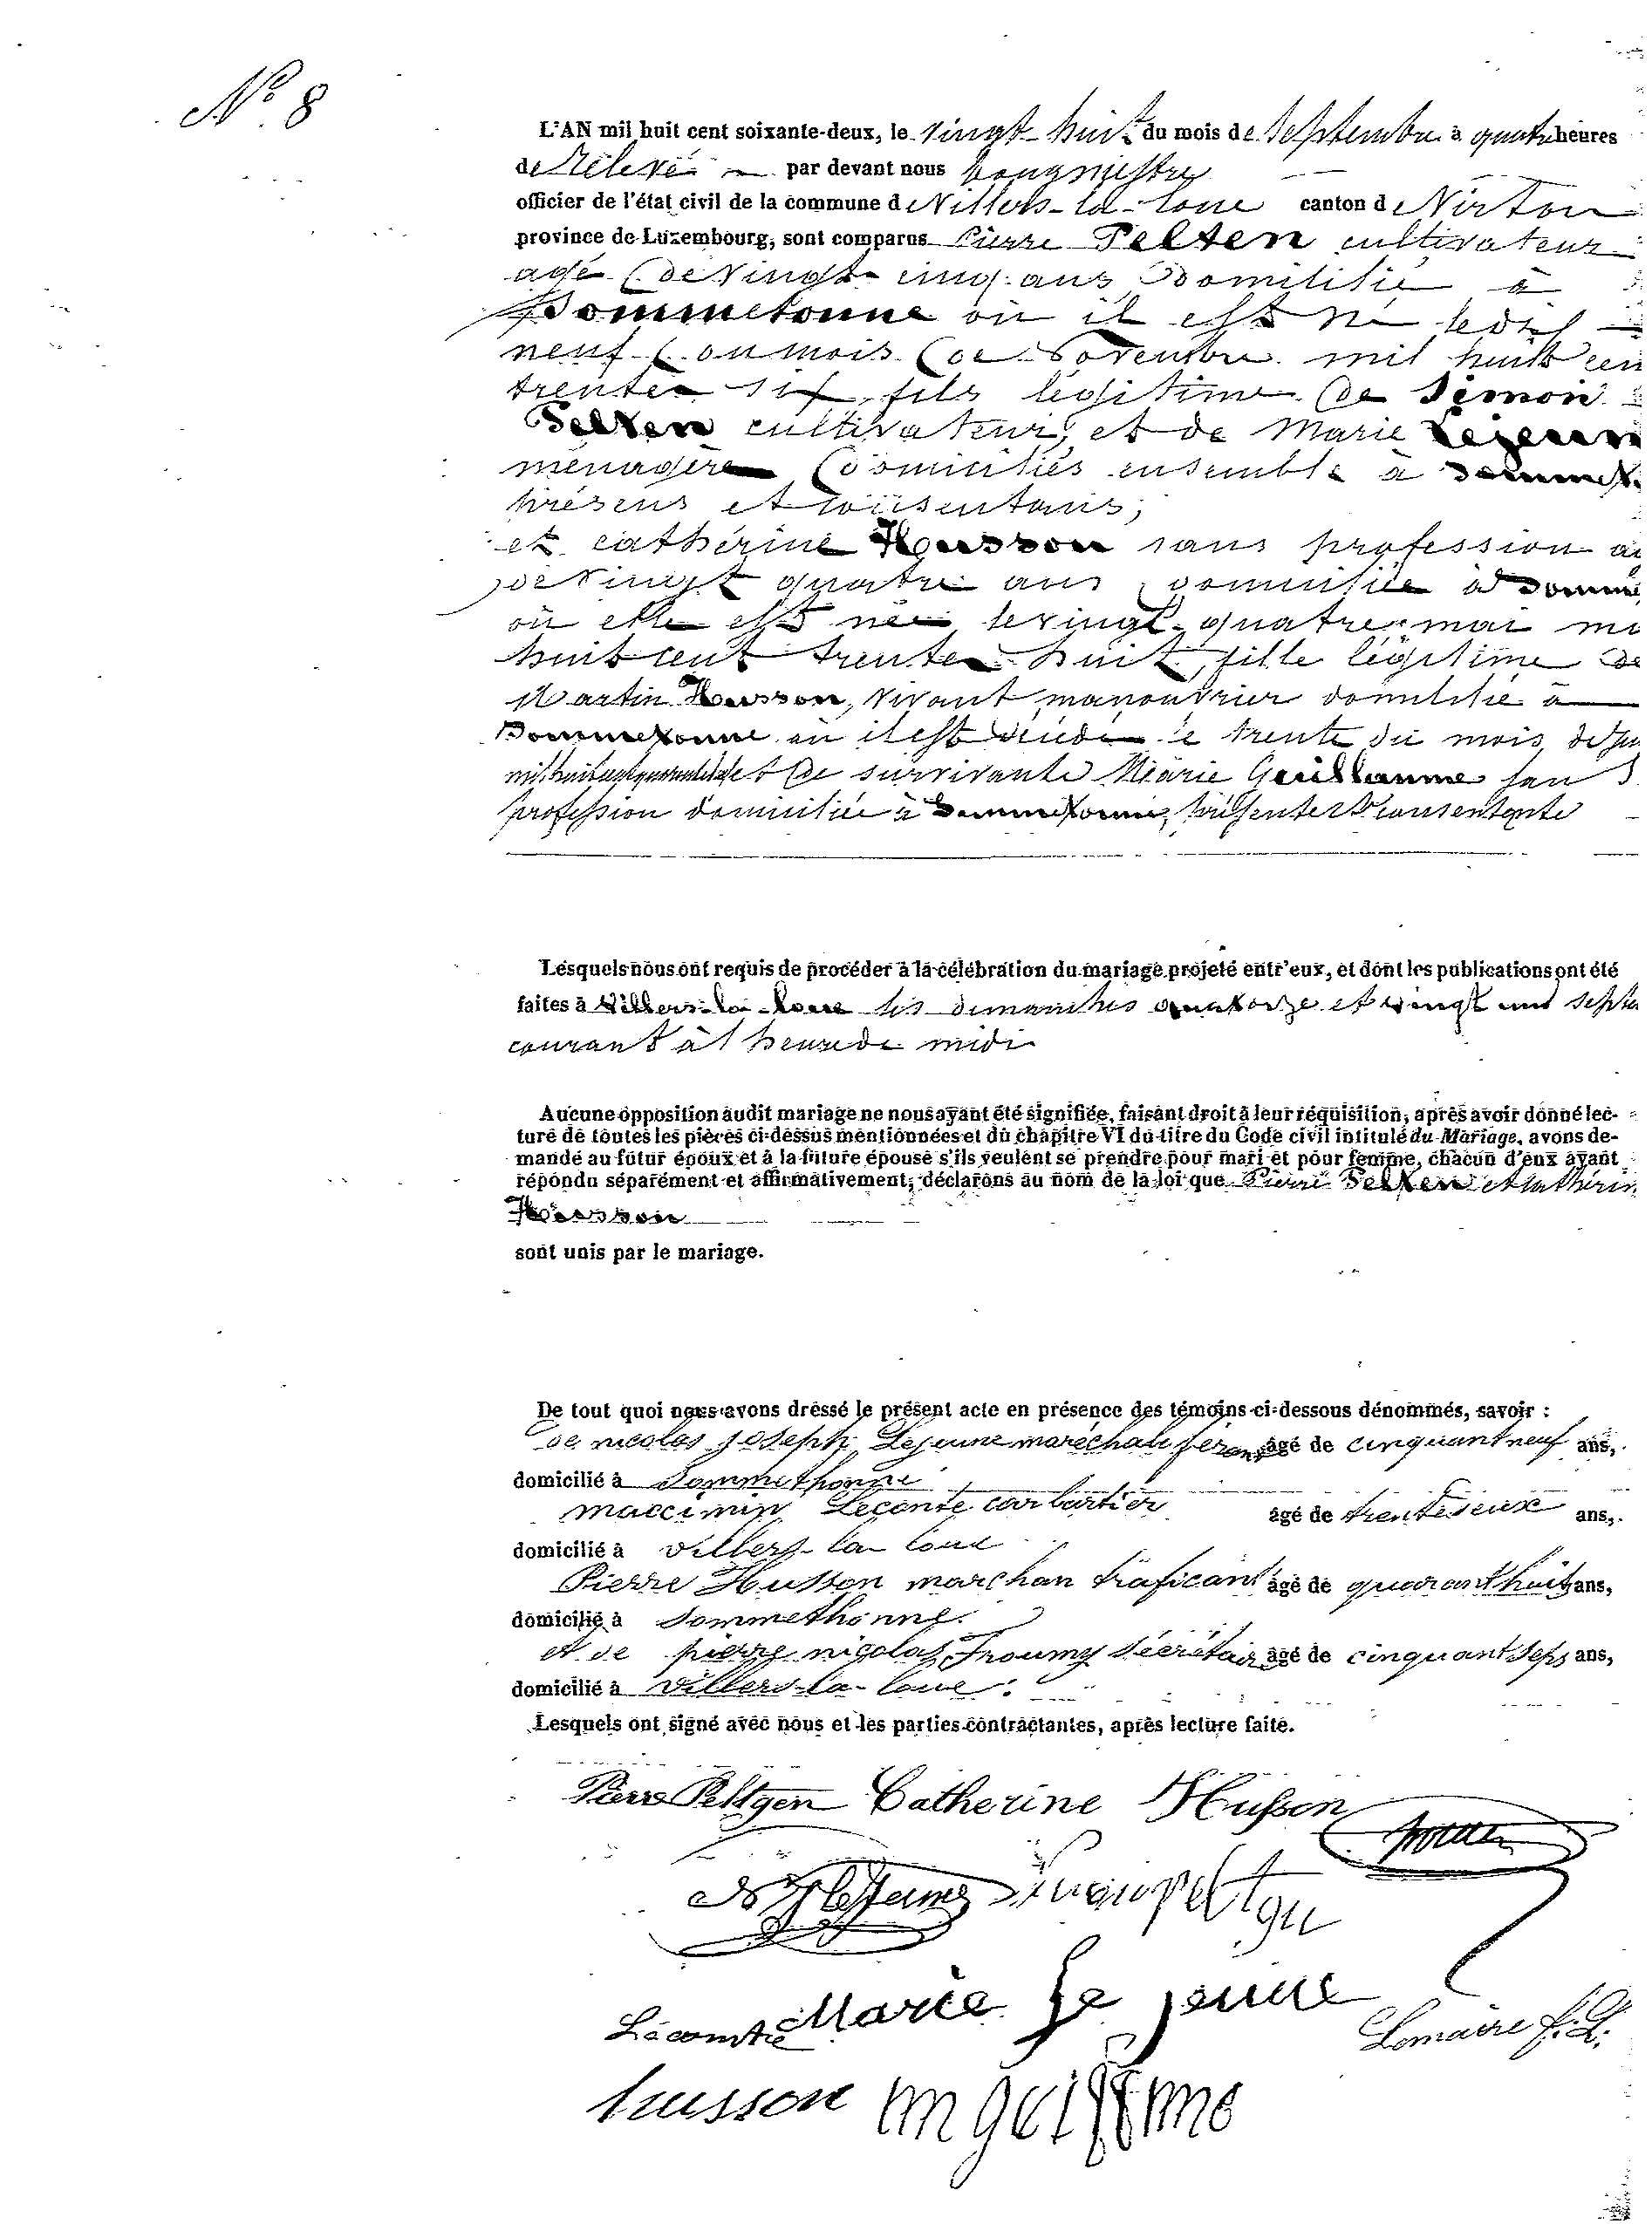 N° 8
L'AN mil huit cent soixante-deux, le vingt huit du mois de Septembre à quatre heures
de rélevé par devant nous bourgmestre
officier de l'état civil de la commune de Villers-la-loue canton de Virton
province de Luxembourg, sont comparus Pierre Pelten cultivateur
agé de vingt cinq ans domicilié à
Sommetonne où il est né le dix
neuf du mois de Novembre mil huit cen
trente six, fils légitime de Simon
Pelten cultivateur, et de Marie Lejeun
ménagère domiciliés ensemble à Sommet
présens et consentans;
et cathérine Husson sans profession ag
de vingt quatre ans domiciliée à Somme
où elle est née le vingt-quatre mai mi
huit cent trente huit, fille légitime de
Martin Husson, vivant manouvrier domicilié à
Sommetonne où il est décédé le trente du mois de
et de survivante Marie Guillaume san s
profession domiciliée à Sommetonne, présente et consentente
Lesquels nous ont requis de procéder à la célébration du mariage projeté entr'eux, et dont les publications ont été
faites à Villers-la-loue les dimanches quatorze et vingt un septe
courant à l heure de midi
Aucune opposition audit mariage ne nous ayant été signifiée, faisant droit à leur réquisition, après avoir donné lec-
ture de toutes les pièces ci-dessus mentionnées et du chapitre VI du titre du Code civil intitulé du Mariage, avons de-
mandé au futur époux et à la future épouse s'ils veulent se prendre pour mari et pour femme, chacun d'eux ayant
répondu séparément et affirmativement, déclarons au nom de la loi que Pierre Pelten et Cathérin
Husson
sont unis par le mariage.
De tout quoi nous avons dressé le présent acte en présence des témoins ci-dessous dénommés, savoir :
de nicolas joseph Lejeune maréchale férant âgé de cinquant neuf ans,
domicilié à Sommethonne
maccimin Leconte carbartier âgé de trente deux ans,
domicilié à Villers-la-loue
Pierre Husson marchan traficant âgé de quarant huit ans,
domicilié à Sommethonne
et de pierre nicolas Froumy sécrétaire âgé de cinquant sept ans,
domicilié à Villers-la-loue.
Lesquels ont signé avec nous et les parties contractantes, après lecture faite.
Pierre Peltgen Catherine Husson
Marie Le jeune
Lecomte Lemaire f. L.
husson